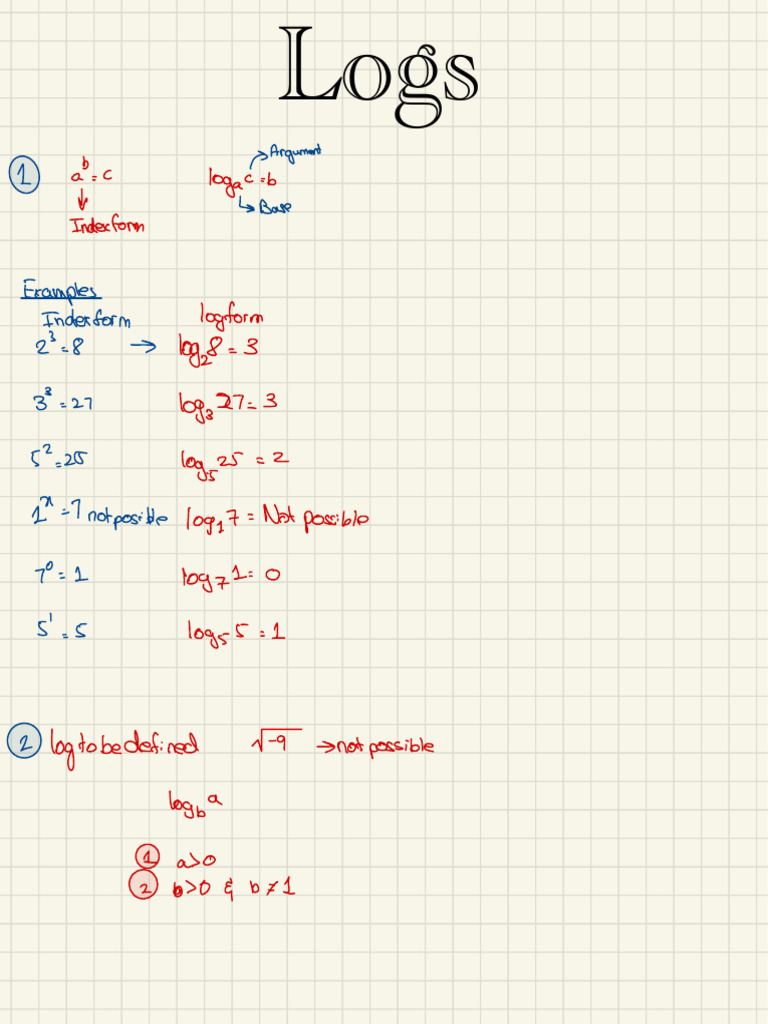 Logs
1 a^b = c log_a c = b Argument
Index form Base
Examples
Index form log form
2^3 = 8 → log_2 8 = 3
3^3 = 27 log_3 27 = 3
5^2 = 25 log_5 25 = 2
1^x = 7 not posible log_1 7 = Not possible
7^0 = 1 log_7 1 = 0
5^1 = 5 log_5 5 = 1
2 log to be defined √-9 → not possible
log_b a
1 a>0
2 b>0 & b≠1